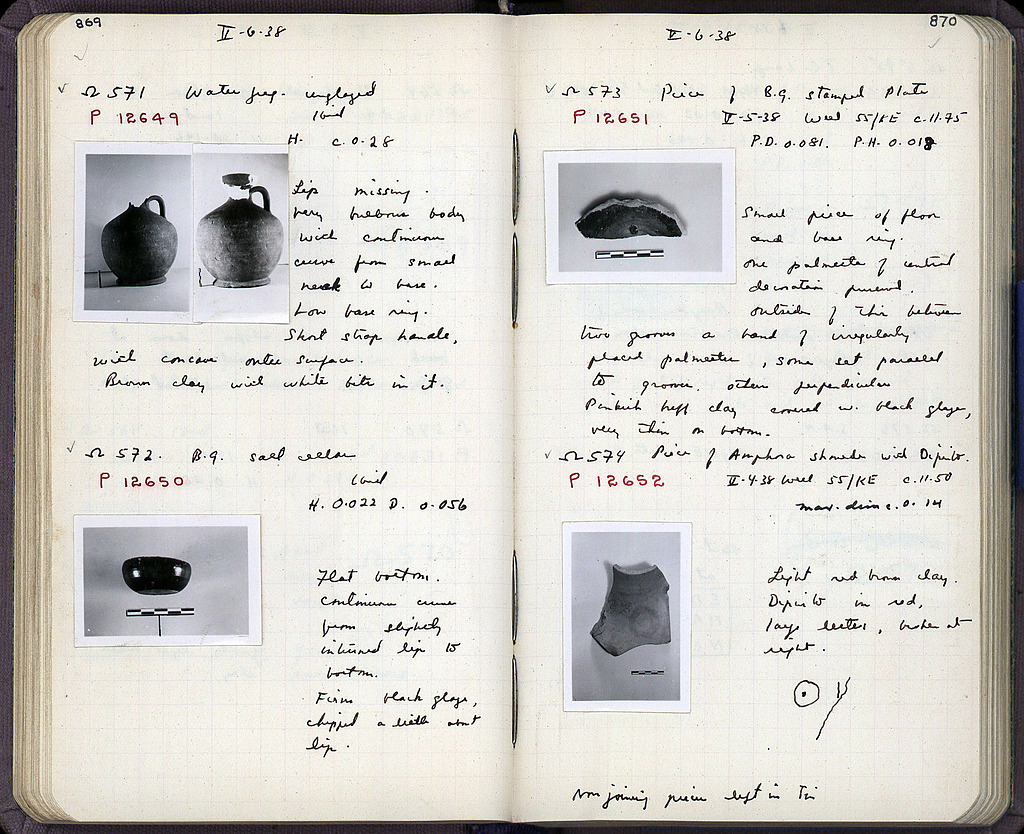 869
II-6-38
Ω 571 Water jug. unglazed
P 12649
Ibid
H. c. 0.28
Lip missing.
Very bulbous body
with continuous
curve from small
neck to base.
Low base ring.
Short strap handle,
with concave outer surface.
Brown clay with white bits in it.
Ω 572. B.g. salt cellar
P 12650
Ibid
H. 0.022 D. 0.056
Flat bottom.
Continuous curve
from slightly
inturned lip to
bottom.
Firm black glaze,
chipped a little about
lip.
870
II-6-38
Ω 573 Piece of B.g. stamped Plate
P 12651 II-5-38 Well 55/KE c.11.75
P.D. 0.081. P.H. 0.018
Small piece of floor
and base ring.
One palmette of central
decoration preserved.
Outside of this between
two grooves a band of irregularly
placed palmettes, some set parallel
to grooves, others perpendicular
Pinkish buff clay covered w. black glaze,
very thin on bottom.
Ω 574 Piece of Amphora shoulder with Dipinto.
P 12652 II-4-38 Well 55/KE c.11.50
max. dim c. 0.14
Light red brown clay.
Dipinto in red,
large letters, broken at
right.
Non joining piece left in Tin